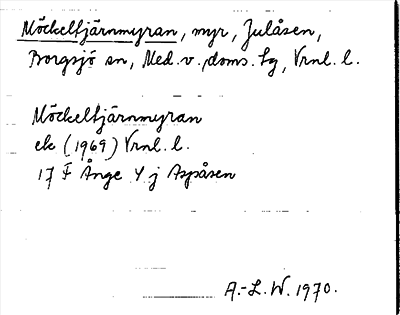 Möckeltjärnmyran, myr, Julåsen,
Borgsjö sn, Med. v. doms. tg, Vrnl. l.
Möckeltjärnmyran
ek (1969) Vrnl. l.
17 F Ånge 4 j Aspåsen
A.-L. W. 1970.